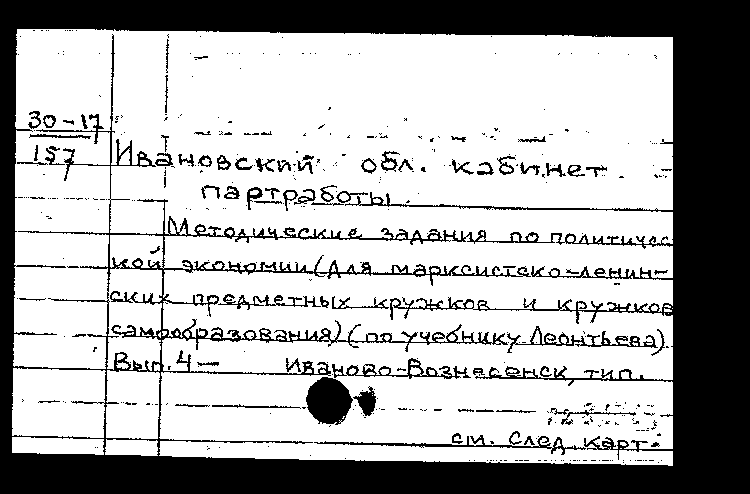 30-17
157
Ивановский обл. кабинет
партработы.
Методические задания по политичес
кой экономии (для марксистско-ленин-
ских предметных кружков и кружков
самообразования) (по учебнику Леонтьева)
Вып. 4 — Иваново-Вознесенск, тип.
см. след. карт.